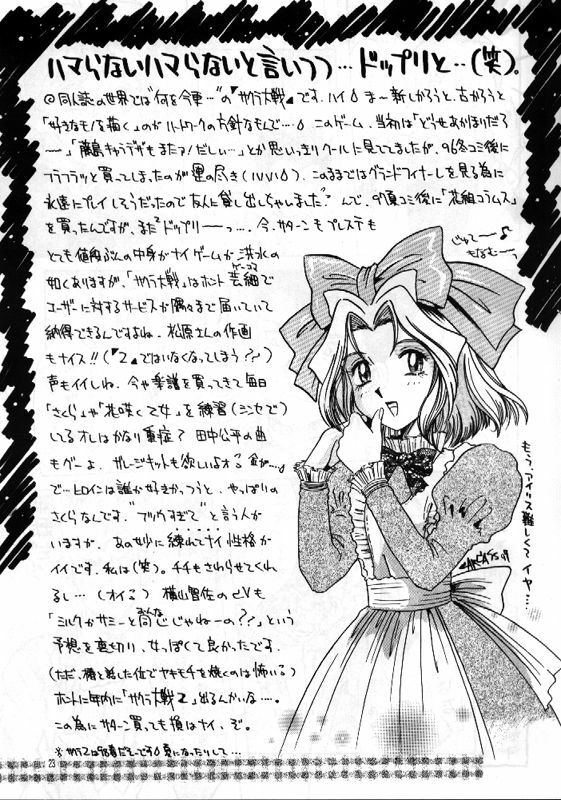 ハマらないハマらないと言いつつ…ドップリと‥(笑)。
◎同人誌の世界では"何を今更…"の『サクラ大戦』です。ハイ◊ ま〜新しかろうと、古かろうと
「好きなモノを描く」のがハートワークの方針なもんで…◊ このゲーム、当初は「どうせあかほりだろ
〜」「藤島キャラデザもまたァ!だしぃ…」とか思いっきりクールに見てましたが、96冬コミ後に
フラフラッと買ってしまったのが運の尽き(パパパ◊)。このままではグランドフィナーレを見る為に
永遠にプレイしそうだったので友人に貸し出しちゃいました んで、97夏コミ後に「花組コラムス」
を買ったんですが、まだドップリーーっ…。今、サターンもプレステも
とても値段ぶんの中身がナイゲームが洪水の
如くありますが、『サクラ大戦』はホント芸細で
ユーザーに対するサービスが隅々まで届いていて
納得できるんですよね。松原さんの作画
もナイス!!(『2』ではいなくなってしまう??)
声もイイしね。今や楽譜を買ってきて毎日
「さくら」や「花咲く乙女」を練習(シンセで)
してるオレはかなり重症? 田中公平の曲
もグーよ。ガレージキットも欲しいよオ 金が…◊
で…ヒロインは誰が好きかっつうと、やっぱりの
さくらなんです。"ブリッ子すぎて"と言う人が
いますが、あの妙に練れてナイ性格が
イイです。私は(笑)。チチもさわらせてくれ
るし…(オイこら) 横山智佐のCVも
「ミルクかサミーと同じじゃねーの??」という
予想を裏切り、女っぽくて良かったです。
(ただ、椿と話した位でヤキモチを焼くのは怖いる)
ホントに年内に『サクラ大戦2』出るんかいな…。
この為にサターン買っても損はナイ、ぞ。
じゃって〜♪
もなむーっ
もう、アイリス難しくてイヤ…
23